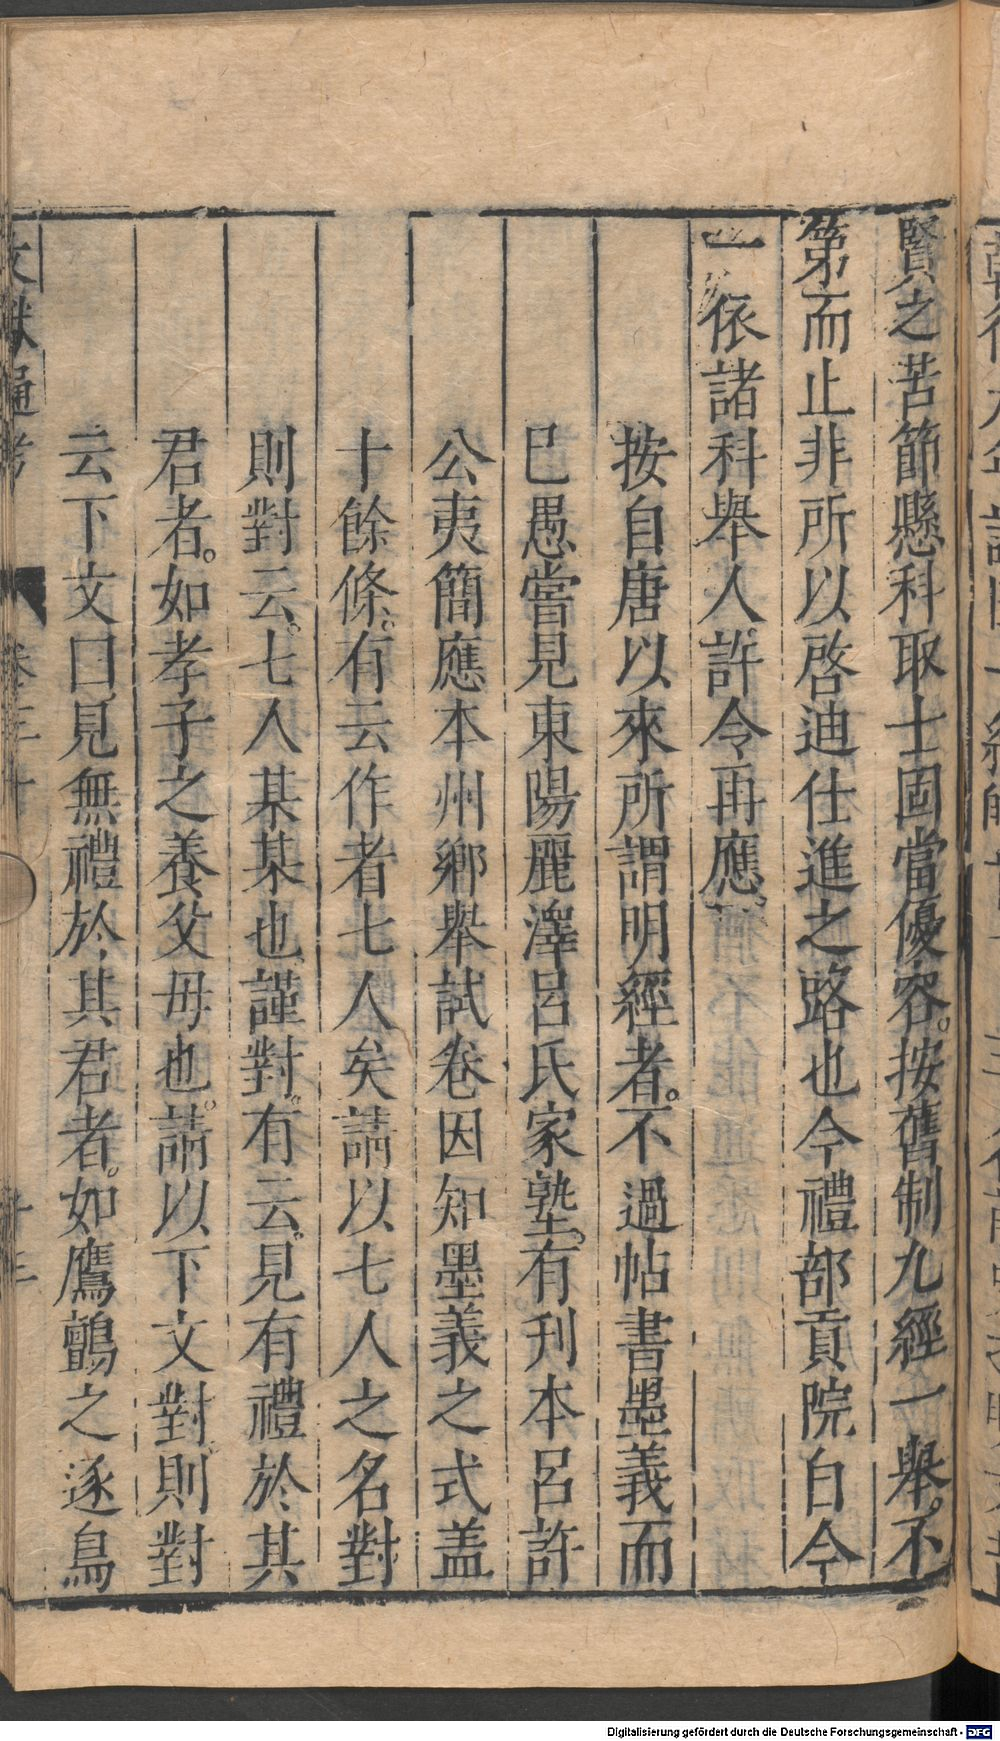 賢之苦節懸科取士固當優容。按舊制九經一舉。不
第而止非所以啓迪仕進之路也今禮部貢院自今
一依諸科舉人許令再應
按自唐以來所謂明經者。不過帖書墨義而
巳愚嘗見東陽麗澤呂氏家塾。有刊本呂許
公夷簡應本州鄉舉試卷因知墨義之式盖
十餘條。有云作者七人矣請以七人之名對
則對云。七人某某也謹對。有云。見有禮於其
君者。如孝子之養父毋也。請以下文對則對
云下文曰見無禮於其君者。如鷹鸇之逐鳥
文獻通考 卷三十 十三
Digitalisierung gefördert durch die Deutsche Forschungsgemeinschaft - DFG